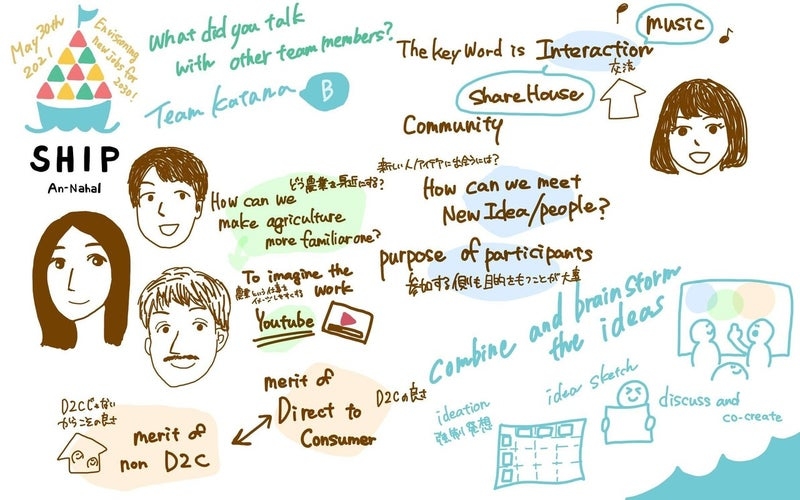 May 30th
2021
Envisioning
new jobs for
2030!
SHIP
An-Nahal
What did you talk
with other team members?
Team Katana B
The key word is Interaction
交流
music
ShareHouse
Community
どう農業を身近にする?
How can we
make agriculture
more familiar one?
新しい人/アイデアに出会うには?
How can we meet
New Idea/people?
To imagine the
work
農業という仕事を
イメージしやすくする
Youtube
purpose of participants
参加する側も目的をもつことが大事
combine and brainstorm
the ideas
merit of
Direct to
Consumer
D2Cの良さ
D2Cじゃない
からこその良さ
merit of
non D2C
ideation
強制発想
idea sketch
discuss and
co-create